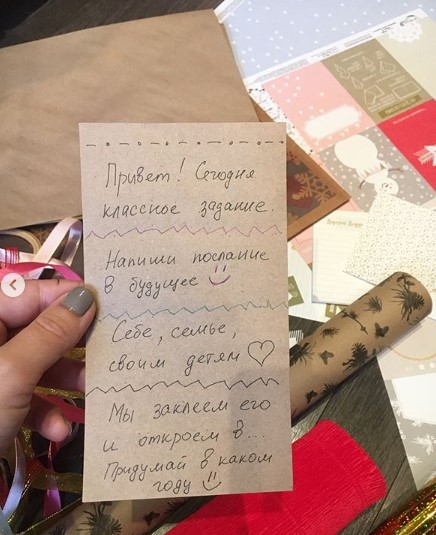 Привет! Сегодня
классное задание.
Напиши послание
в будущее
Себе, семье,
своим детям
Мы заклеем его
и откроем в...
Придумай в каком
году